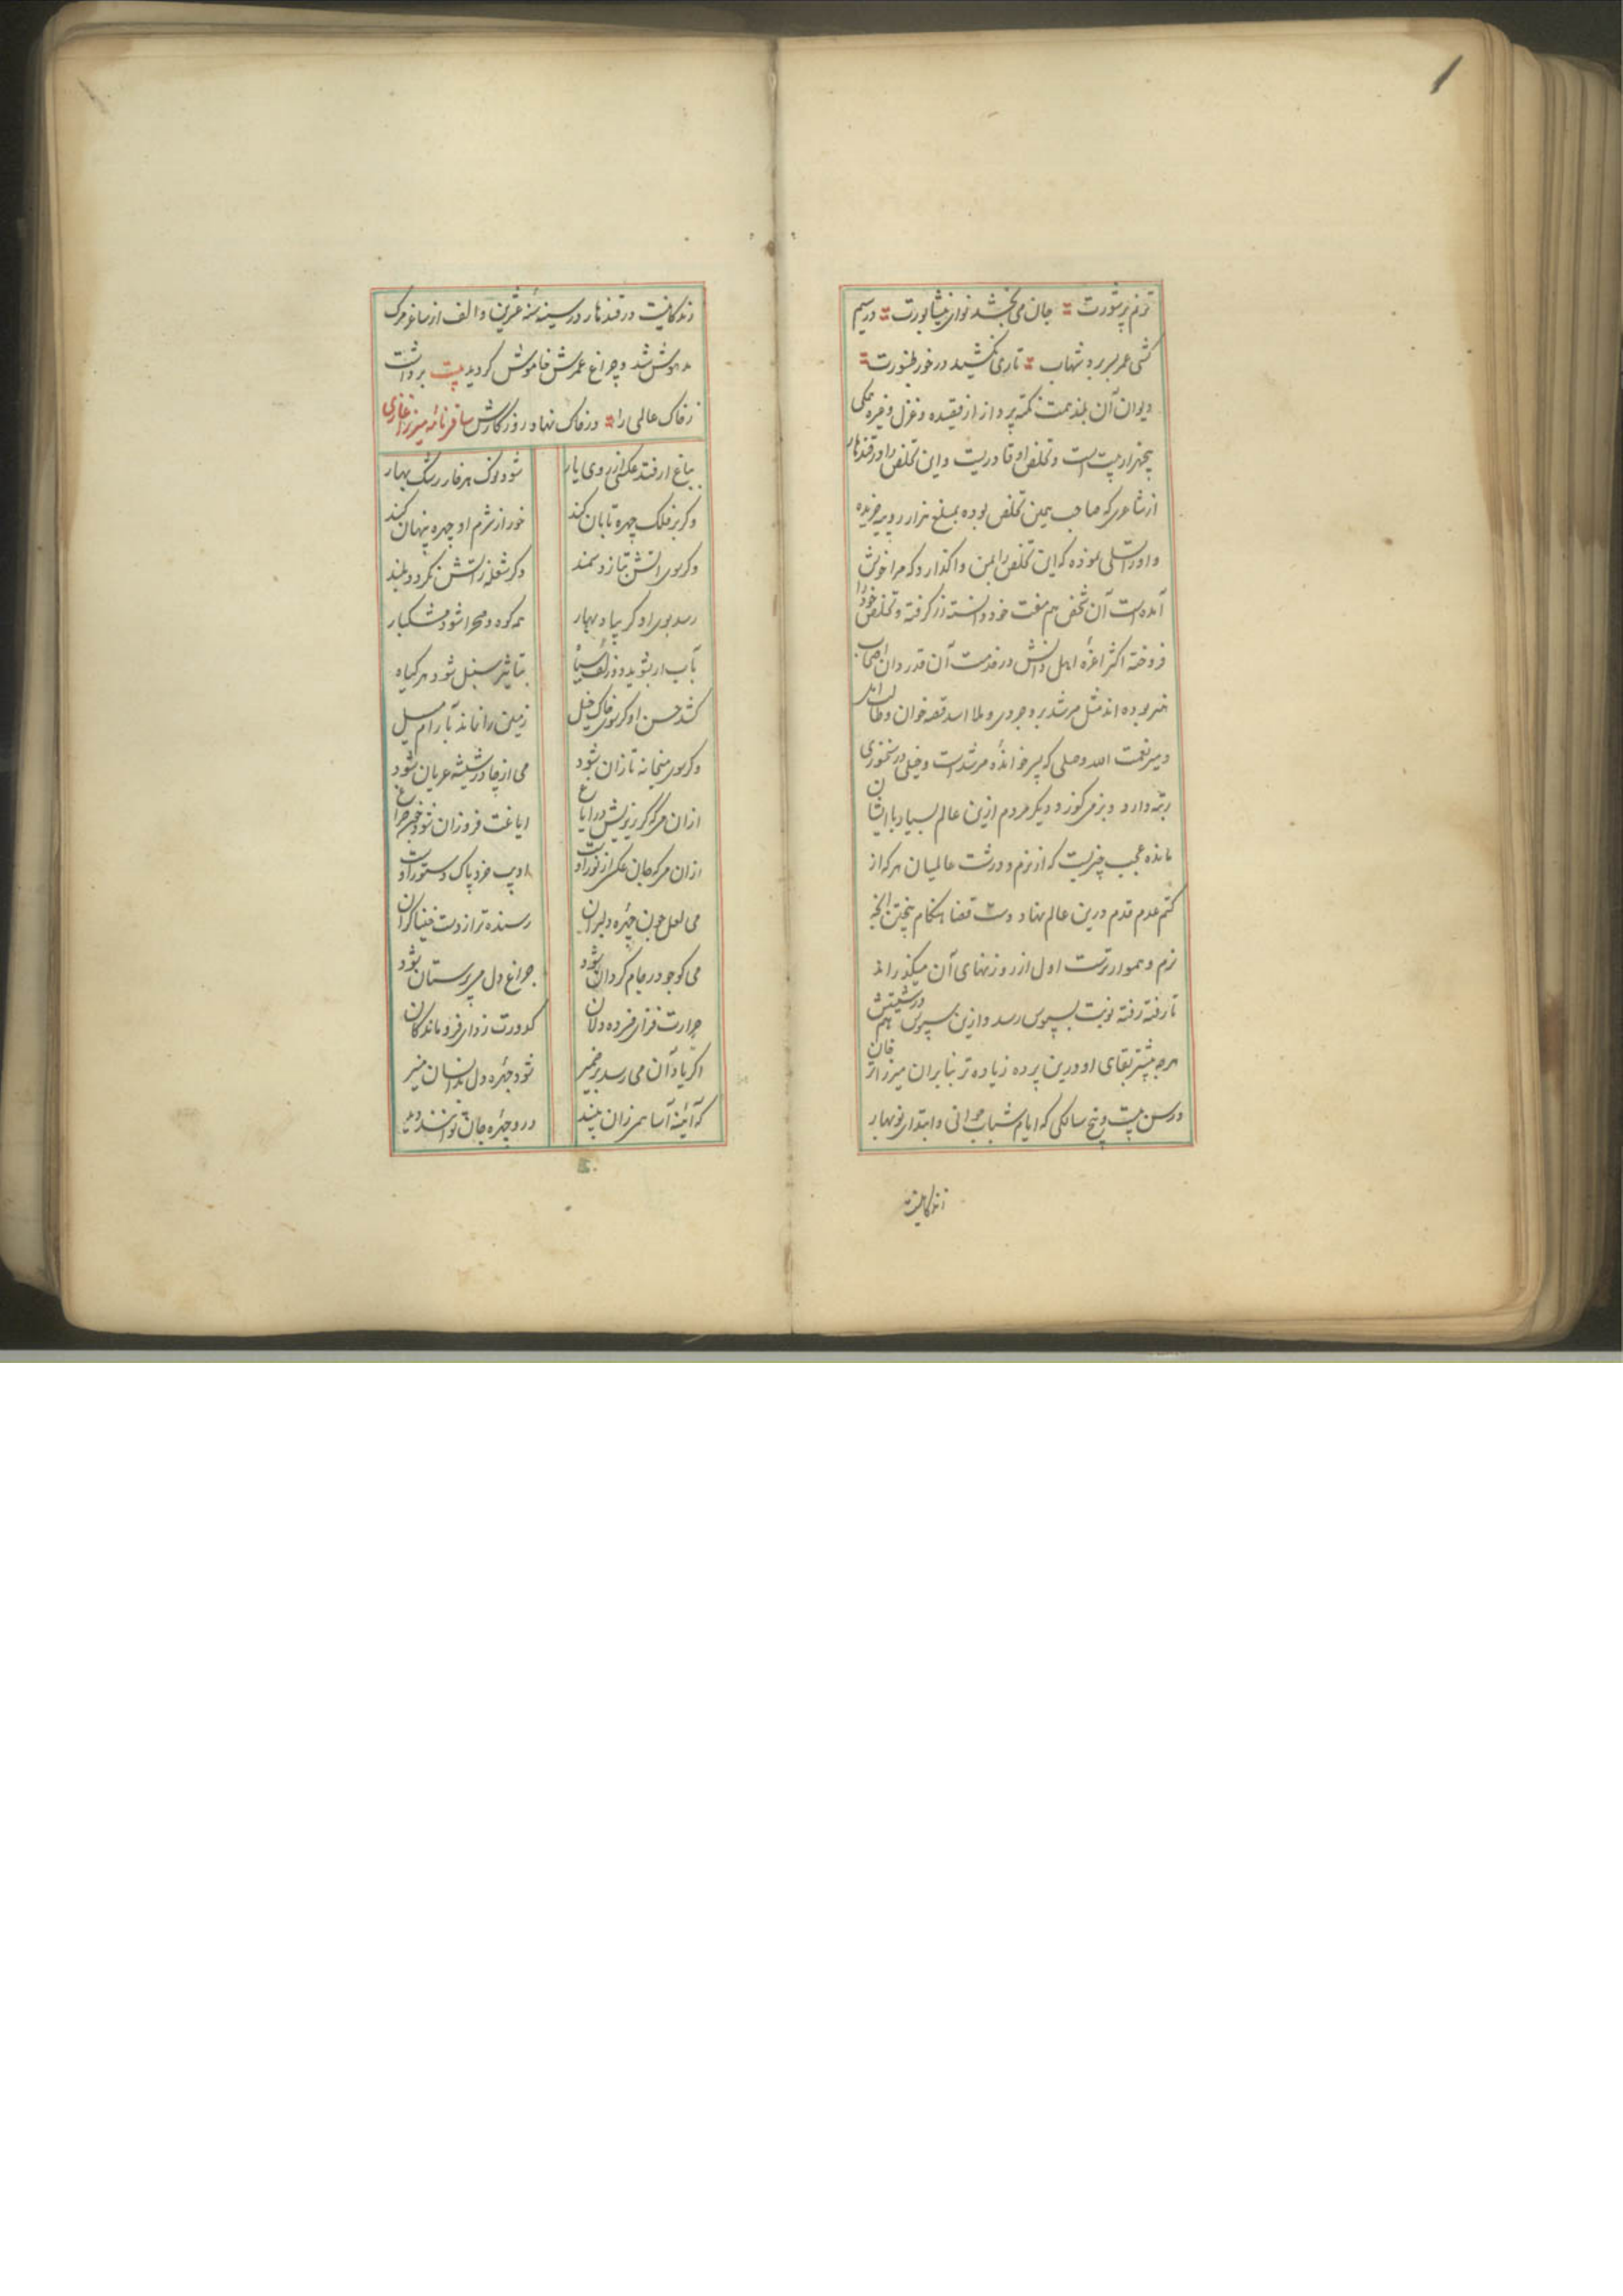 ترنم پر شورت جان می بخشد نوای نیشابورت در سیم
کشی عمر بسر برد شهاب تاری نکشید در خور طنبورت
دیوان آن بلند همت نکته پرداز از قصیده و غزل و غیره همگی
پنجهزار بیت است و تخلص او قاریست و این تخلص را در قندهار
از شاعری که صاحب همین تخلص بوده بمبلغ هزار روپیه خریده
و او را تسلی نموده که این تخلص را بمن واگذار که مرا خوش
آمده است آن شخص هم مفت خود دانسته زر گرفته و تخلص خود را
فروخته اکثر اعزه اهل دانش در خدمت آن قدردان اصحاب
هنر بوده اند مثل مرشد بروجردی و ملا اسد قصه خوان و طالب
و میر نعمت الله وصلی که پسر خوانده مرشد است و خیلی در سخنوری
رتبه دارد و بزمی کوزر و دیگر مردم ازین عالم بسیار با ایشان
مانده عجب چیزیست که از نرم و درشت عالمیان هر که از
کتم عدم قدم درین عالم نهاد دست قضا هنگام پختن آنچه
نرم و هموارترست اول از روزنهای آن میگذراند
تا رفته رفته نوبت بسبوس رسد و ازین سبوس هم درشتیش
هرچه بیشتر بقای او درین پرده زیاده تر بنابران میرزا خان
در سن بیست و پنج سالگی که ایام شباب جوانی و ابتدای نوبهار
زندگانیست
زندگانیست در قندهار در سنه عشرین و الف از ساغر مرگ
مدهوش شد و چراغ عمرش خاموش گردید بیت برداشت
ز خاک عالمی را در خاک نهاد روزگارش ساقی نامه میرزا غازی
بباغ ار فتد عکسی از روی یار شود نوک هر خار رشک بهار
وگر بر فلک چهره تابان کند خور از شرم او چهره پنهان کند
وگر بوی آتش بتازد سمند دگر شعله ز آتش نگردد بلند
رسد بوی او گر بباد بهار همه کوه و صحرا شود مشکبار
بآب ار بشوید دو زلف سیاه بتاثیر سنبل شود هر گیاه
کشد حسن او گر بسوی خاک خیل زمین را نماند بآرام میل
وگر سوی میخانه تازان شود می از چادر شیشه عریان شود
ازان می که گر ریزیش در ایاغ ایاغت فروزان شود چون چراغ
ازان می که جان عکسی از نور اوست ادیب خرد پاک دستور اوست
می لعل چون چهره دلبران رسنده تر از دست خنیاگران
می کو چو در جام گردان شود چراغ دل می پرستان شود
حرارت فزای فسرده دلان کدورت زدای فروماندگان
اگر یاد آن می رسد بر ضمیر شود چهره دل بدانسان منیر
که آئینه آسا همی زان پسند درو چهره جان توانند دید